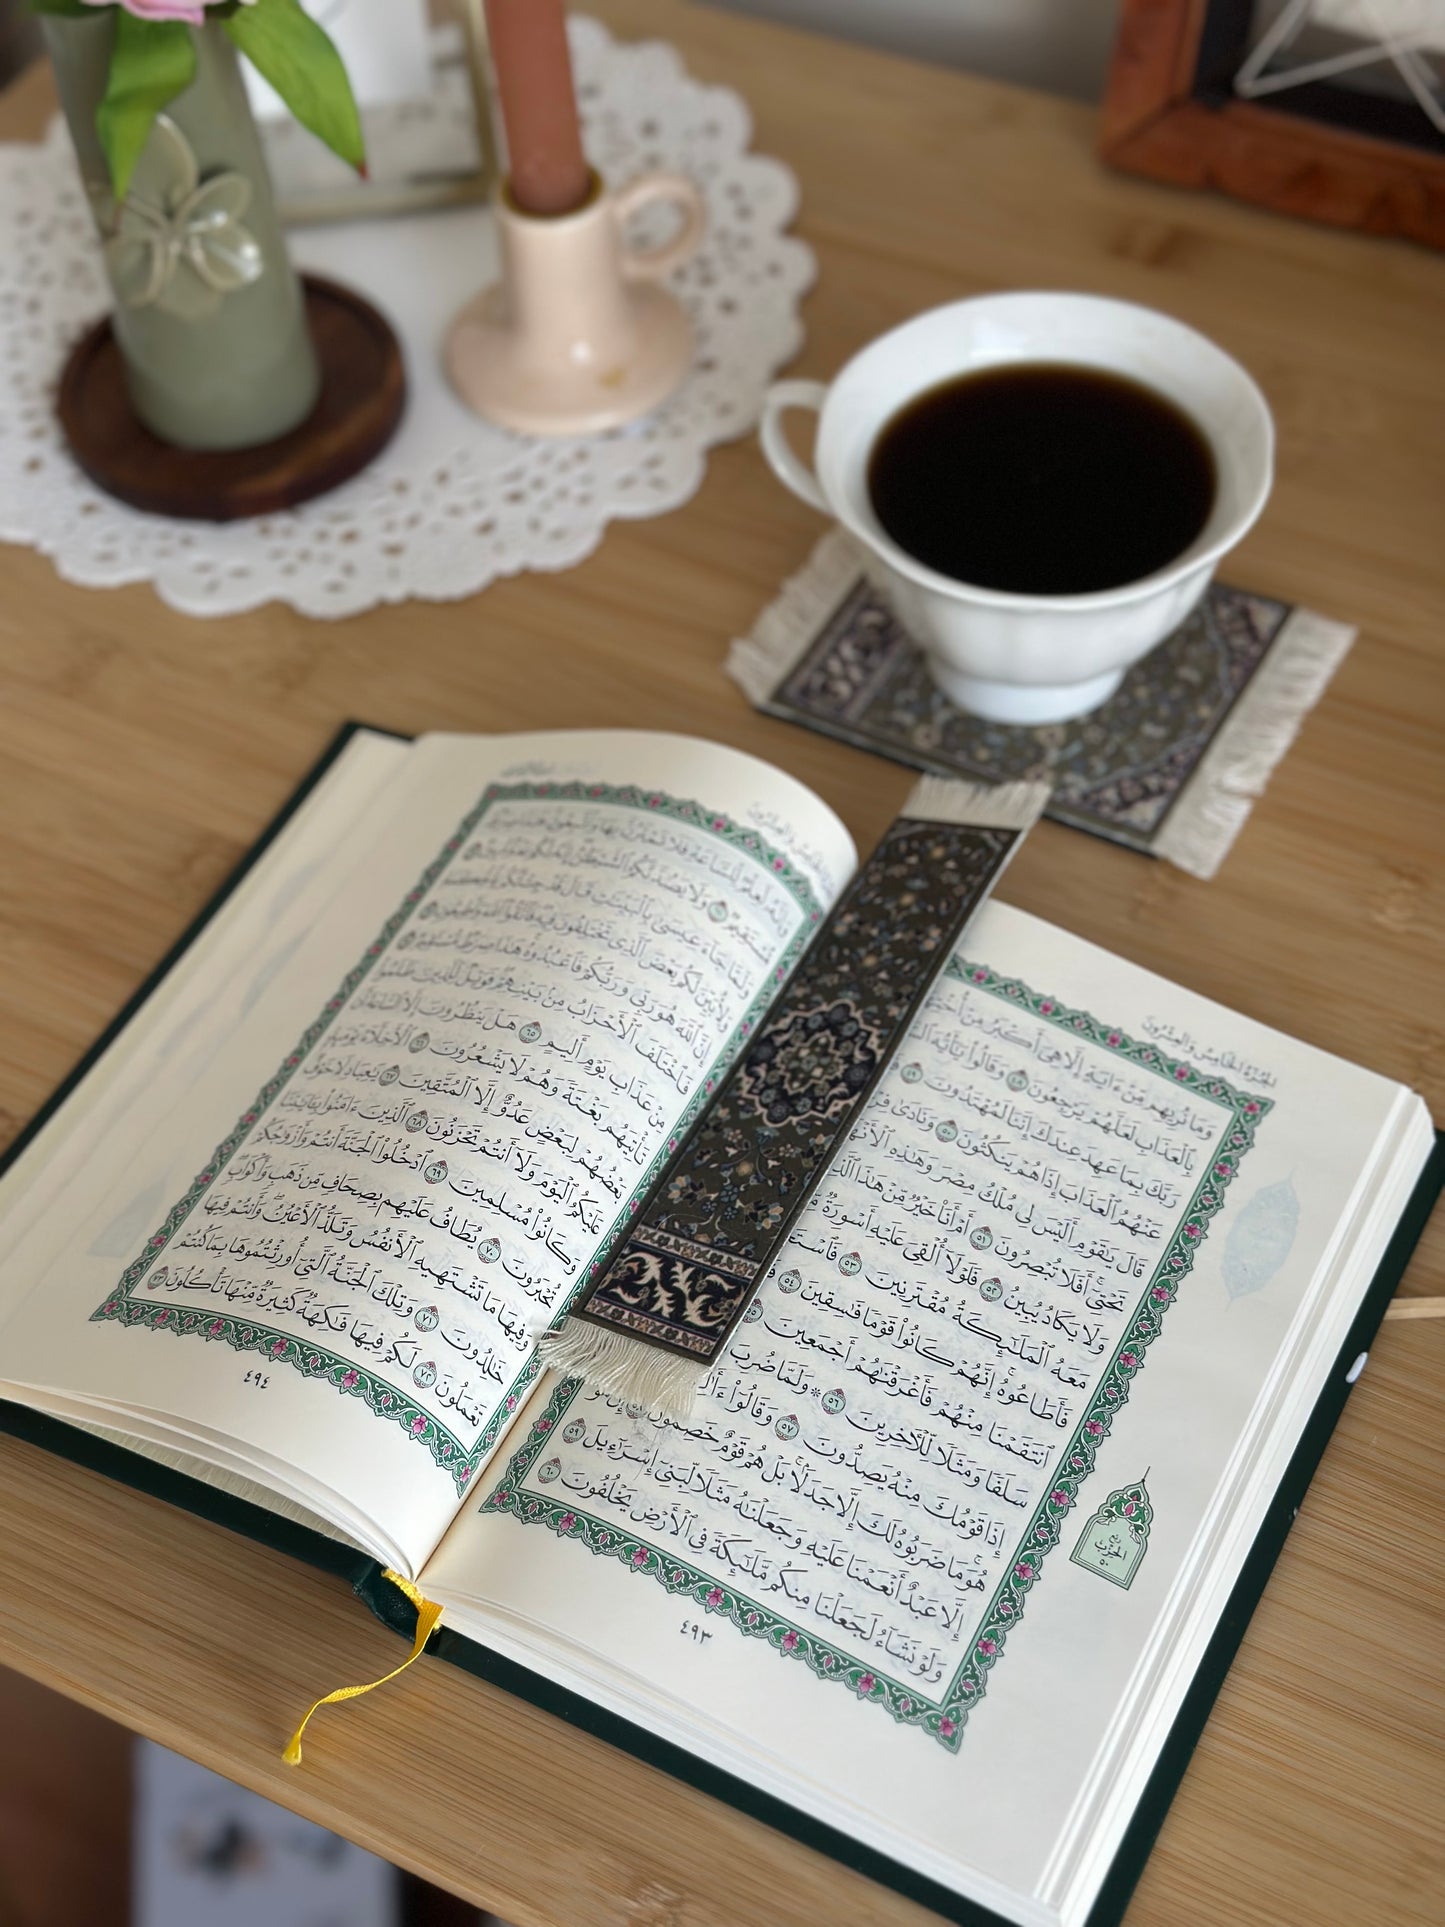 الجُزْءُ الخَامِسُ وَالعِشْرُونَ
وَمَا نُرِيهِم مِّنْ ءَايَةٍ إِلَّا هِيَ أَكْبَرُ مِنْ
بِٱلْعَذَابِ لَعَلَّهُمْ يَرْجِعُونَ ٤٨ وَقَالُوا۟ يَٰٓأَيُّهَ
رَبَّكَ بِمَا عَهِدَ عِندَكَ إِنَّنَا لَمُهْتَدُونَ ٤٩
عَنْهُمُ ٱلْعَذَابَ إِذَا هُمْ يَنكُثُونَ ٥٠ وَنَادَىٰ
قَالَ يَٰقَوْمِ أَلَيْسَ لِي مُلْكُ مِصْرَ وَهَٰذِهِ
تَحْتِيٓۚ أَفَلَا تُبْصِرُونَ ٥١ أَمْ أَنَا۠ خَيْرٌ مِّنْ هَٰذَا
وَلَا يَكَادُ يُبِينُ ٥٢ فَلَوْلَآ أُلْقِيَ عَلَيْهِ أَسْوِرَةٌ
مَعَهُ ٱلْمَلَٰٓئِكَةُ مُقْتَرِنِينَ ٥٣
فَأَطَاعُوهُۚ إِنَّهُمْ كَانُوا۟ قَوْمًا فَٰسِقِينَ ٥٤
ٱنتَقَمْنَا مِنْهُمْ فَأَغْرَقْنَٰهُمْ أَجْمَعِينَ ٥٥
سَلَفًا وَمَثَلًا لِّلْءَاخِرِينَ ٥٦ ۞ وَلَمَّا ضُرِبَ
إِذَا قَوْمُكَ مِنْهُ يَصِدُّونَ ٥٧ وَقَالُوٓا۟
هُوَۚ مَا ضَرَبُوهُ لَكَ إِلَّا جَدَلًۢاۚ بَلْ هُمْ قَوْمٌ خَصِمُونَ ٥٨ إِنْ هُوَ
إِلَّا عَبْدٌ أَنْعَمْنَا عَلَيْهِ وَجَعَلْنَٰهُ مَثَلًا لِّبَنِيٓ إِسْرَٰٓءِيلَ ٥٩
وَلَوْ نَشَآءُ لَجَعَلْنَا مِنكُم مَّلَٰٓئِكَةً فِي ٱلْأَرْضِ يَخْلُفُونَ ٦٠
٤٩٣
رُبْع
الحِزْب
٥٠
الجُزْءُ الخَامِسُ وَالعِشْرُونَ
وَإِنَّهُۥ لَعِلْمٌ لِّلسَّاعَةِ فَلَا تَمْتَرُنَّ بِهَا وَٱتَّبِعُونِۚ هَٰذَا صِرَٰطٌ
مُّسْتَقِيمٌ ٦١ وَلَا يَصُدَّنَّكُمُ ٱلشَّيْطَٰنُۖ إِنَّهُۥ لَكُمْ عَدُوٌّ مُّبِينٌ ٦٢
وَلَمَّا جَآءَ عِيسَىٰ بِٱلْبَيِّنَٰتِ قَالَ قَدْ جِئْتُكُم بِٱلْحِكْمَةِ
وَلِأُبَيِّنَ لَكُم بَعْضَ ٱلَّذِي تَخْتَلِفُونَ فِيهِۖ فَٱتَّقُوا۟ ٱللَّهَ وَأَطِيعُونِ ٦٣
إِنَّ ٱللَّهَ هُوَ رَبِّي وَرَبُّكُمْ فَٱعْبُدُوهُۚ هَٰذَا صِرَٰطٌ مُّسْتَقِيمٌ ٦٤
فَٱخْتَلَفَ ٱلْأَحْزَابُ مِنۢ بَيْنِهِمْۖ فَوَيْلٌ لِّلَّذِينَ ظَلَمُوا۟
مِنْ عَذَابِ يَوْمٍ أَلِيمٍ ٦٥ هَلْ يَنظُرُونَ إِلَّا ٱلسَّاعَةَ أَن
تَأْتِيَهُم بَغْتَةً وَهُمْ لَا يَشْعُرُونَ ٦٦ ٱلْأَخِلَّآءُ يَوْمَئِذٍۭ
بَعْضُهُمْ لِبَعْضٍ عَدُوٌّ إِلَّا ٱلْمُتَّقِينَ ٦٧ يَٰعِبَادِ لَا خَوْفٌ
عَلَيْكُمُ ٱلْيَوْمَ وَلَآ أَنتُمْ تَحْزَنُونَ ٦٨ ٱلَّذِينَ ءَامَنُوا۟ بِـَٔايَٰتِنَا
وَكَانُوا۟ مُسْلِمِينَ ٦٩ ٱدْخُلُوا۟ ٱلْجَنَّةَ أَنتُمْ وَأَزْوَٰجُكُمْ
تُحْبَرُونَ ٧٠ يُطَافُ عَلَيْهِم بِصِحَافٍ مِّن ذَهَبٍ وَأَكْوَابٍۖ
وَفِيهَا مَا تَشْتَهِيهِ ٱلْأَنفُسُ وَتَلَذُّ ٱلْأَعْيُنُۖ وَأَنتُمْ فِيهَا
خَٰلِدُونَ ٧١ وَتِلْكَ ٱلْجَنَّةُ ٱلَّتِيٓ أُورِثْتُمُوهَا بِمَا كُنتُمْ
تَعْمَلُونَ ٧٢ لَكُمْ فِيهَا فَٰكِهَةٌ كَثِيرَةٌ مِّنْهَا تَأْكُلُونَ ٧٣
٤٩٤